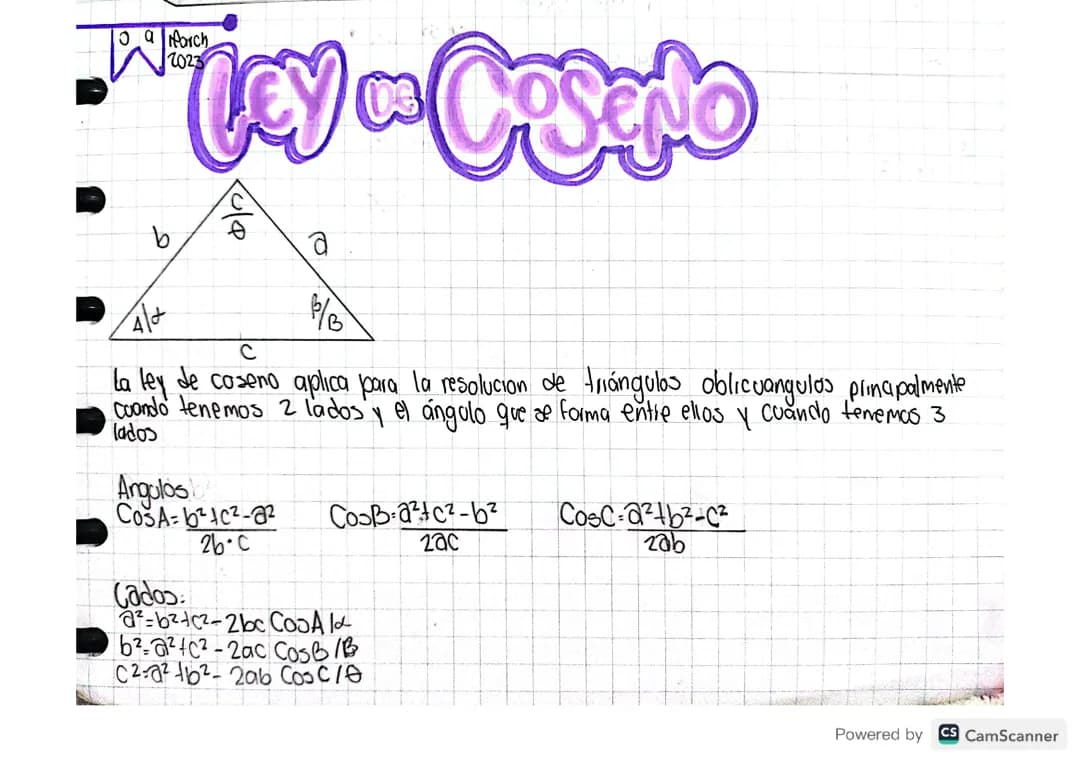 09 March
2023
LEY DE COSENO
C
θ
b
a
A/α
β/B
C
La ley de coseno aplica para la resolucion de triángulos oblicuangulos principalmente
cuando tenemos 2 lados y el ángulo que se forma entre ellos y cuándo tenemos 3
lados
Angulos
CosA=b²+c²-a²
2b·c
CosB=a²+c²-b²
2ac
CosC=a²+b²-c²
2ab
Lados:
a²=b²+c²-2bc CosA/α
b²=a²+c²-2ac CosB/β
c²=a²+b²-2ab CosC/θ
Powered by CS CamScanner